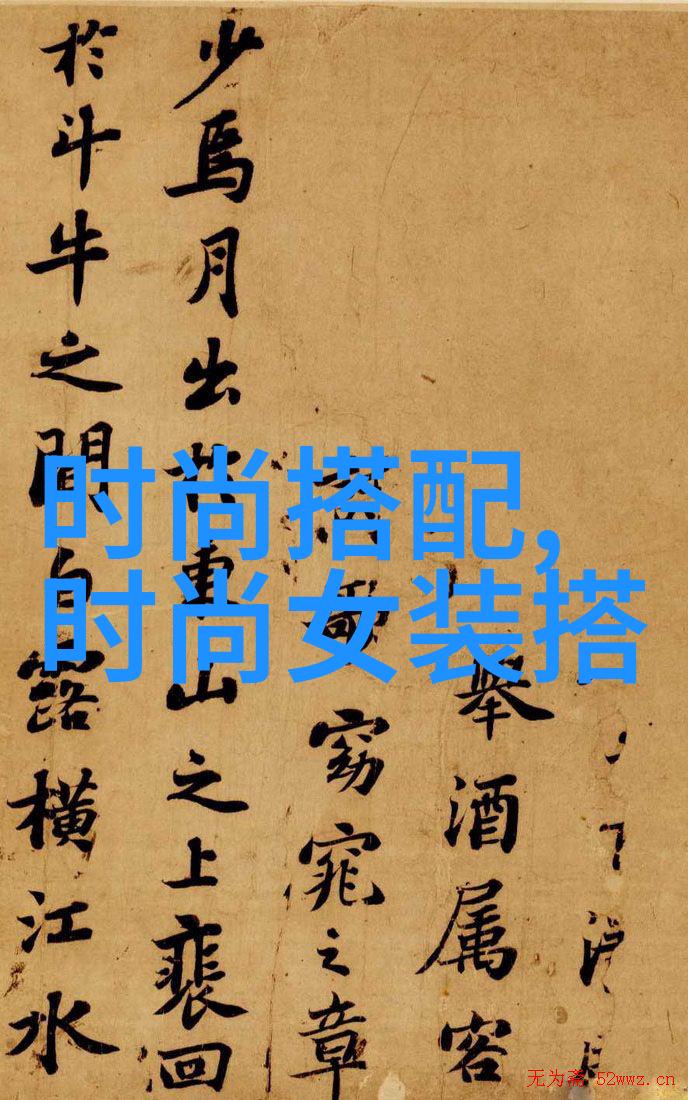 舉酒属客
歌窈窕之章
少焉月出於東山之上裵回
於斗牛之間白露橫江水
时尚搭配,
时尚女装搭
无为斋 52wwz.cn